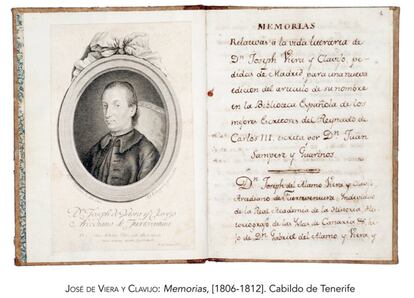 Dn. Joseph de Viera y Clavijo
Arcediano de Fuerteventura
MEMORIAS
Relativas á la vida literaria de
Dn. Joseph Viera y Clavijo, pe-
didas de Madrid, para una nueva
edicion del articulo de su nombre
en la Biblioteca Española de los
mejores Escritores del Reynado de
Carlos III. escrita por Dn. Juan
Sempere y Guarinos
Dn. Joseph del Alamo Viera y Clavijo
Arcediano de Fuerteventura: Individuo
de la Real Academia de la Historia, His-
toriografo de las Islas de Canaria &c. hi-
jo de Dn. Gabriel del Alamo y Viera, y
JOSÉ DE VIERA Y CLAVIJO: Memorias, [1806-1812]. Cabildo de Tenerife